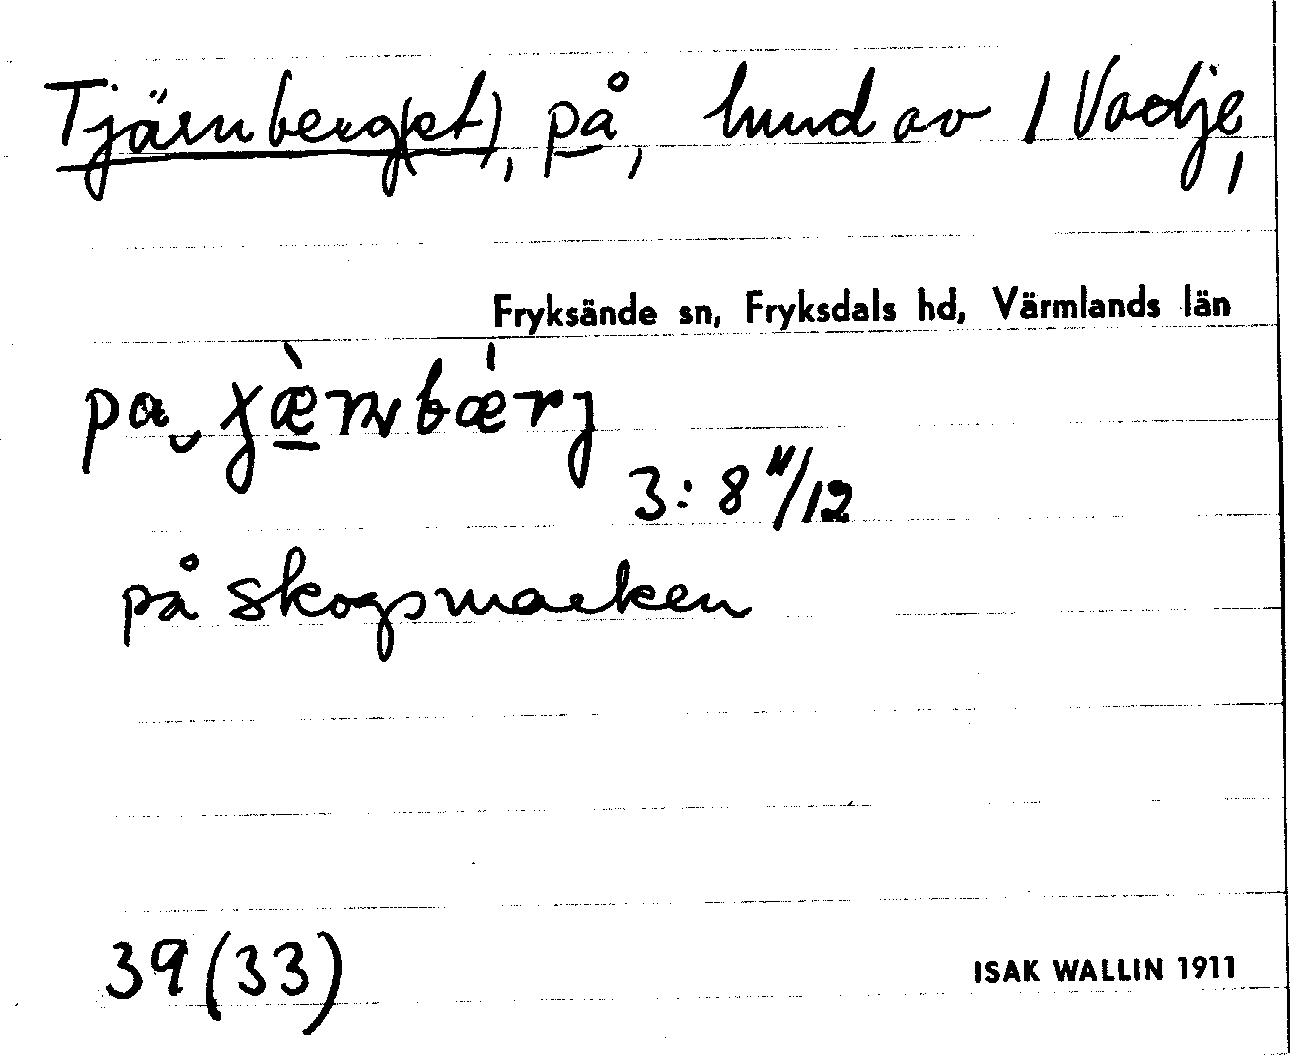 Tjärnberg(et), på, hmd av 1 Vadje,
Fryksände sn, Fryksdals hd, Värmlands län
3:8 "/12
på skogsmarken
39 (33)
ISAK WALLIN 1911